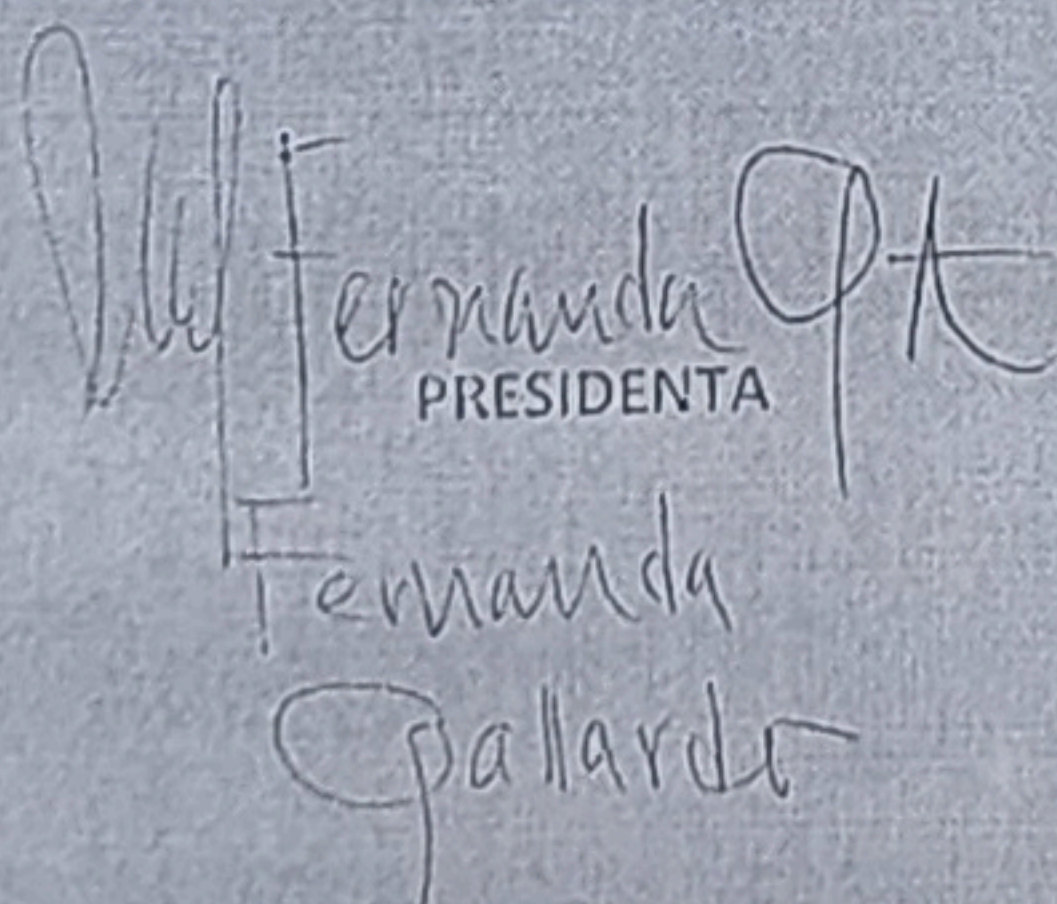 Fernanda G A
PRESIDENTA
Fernanda
Gallardo